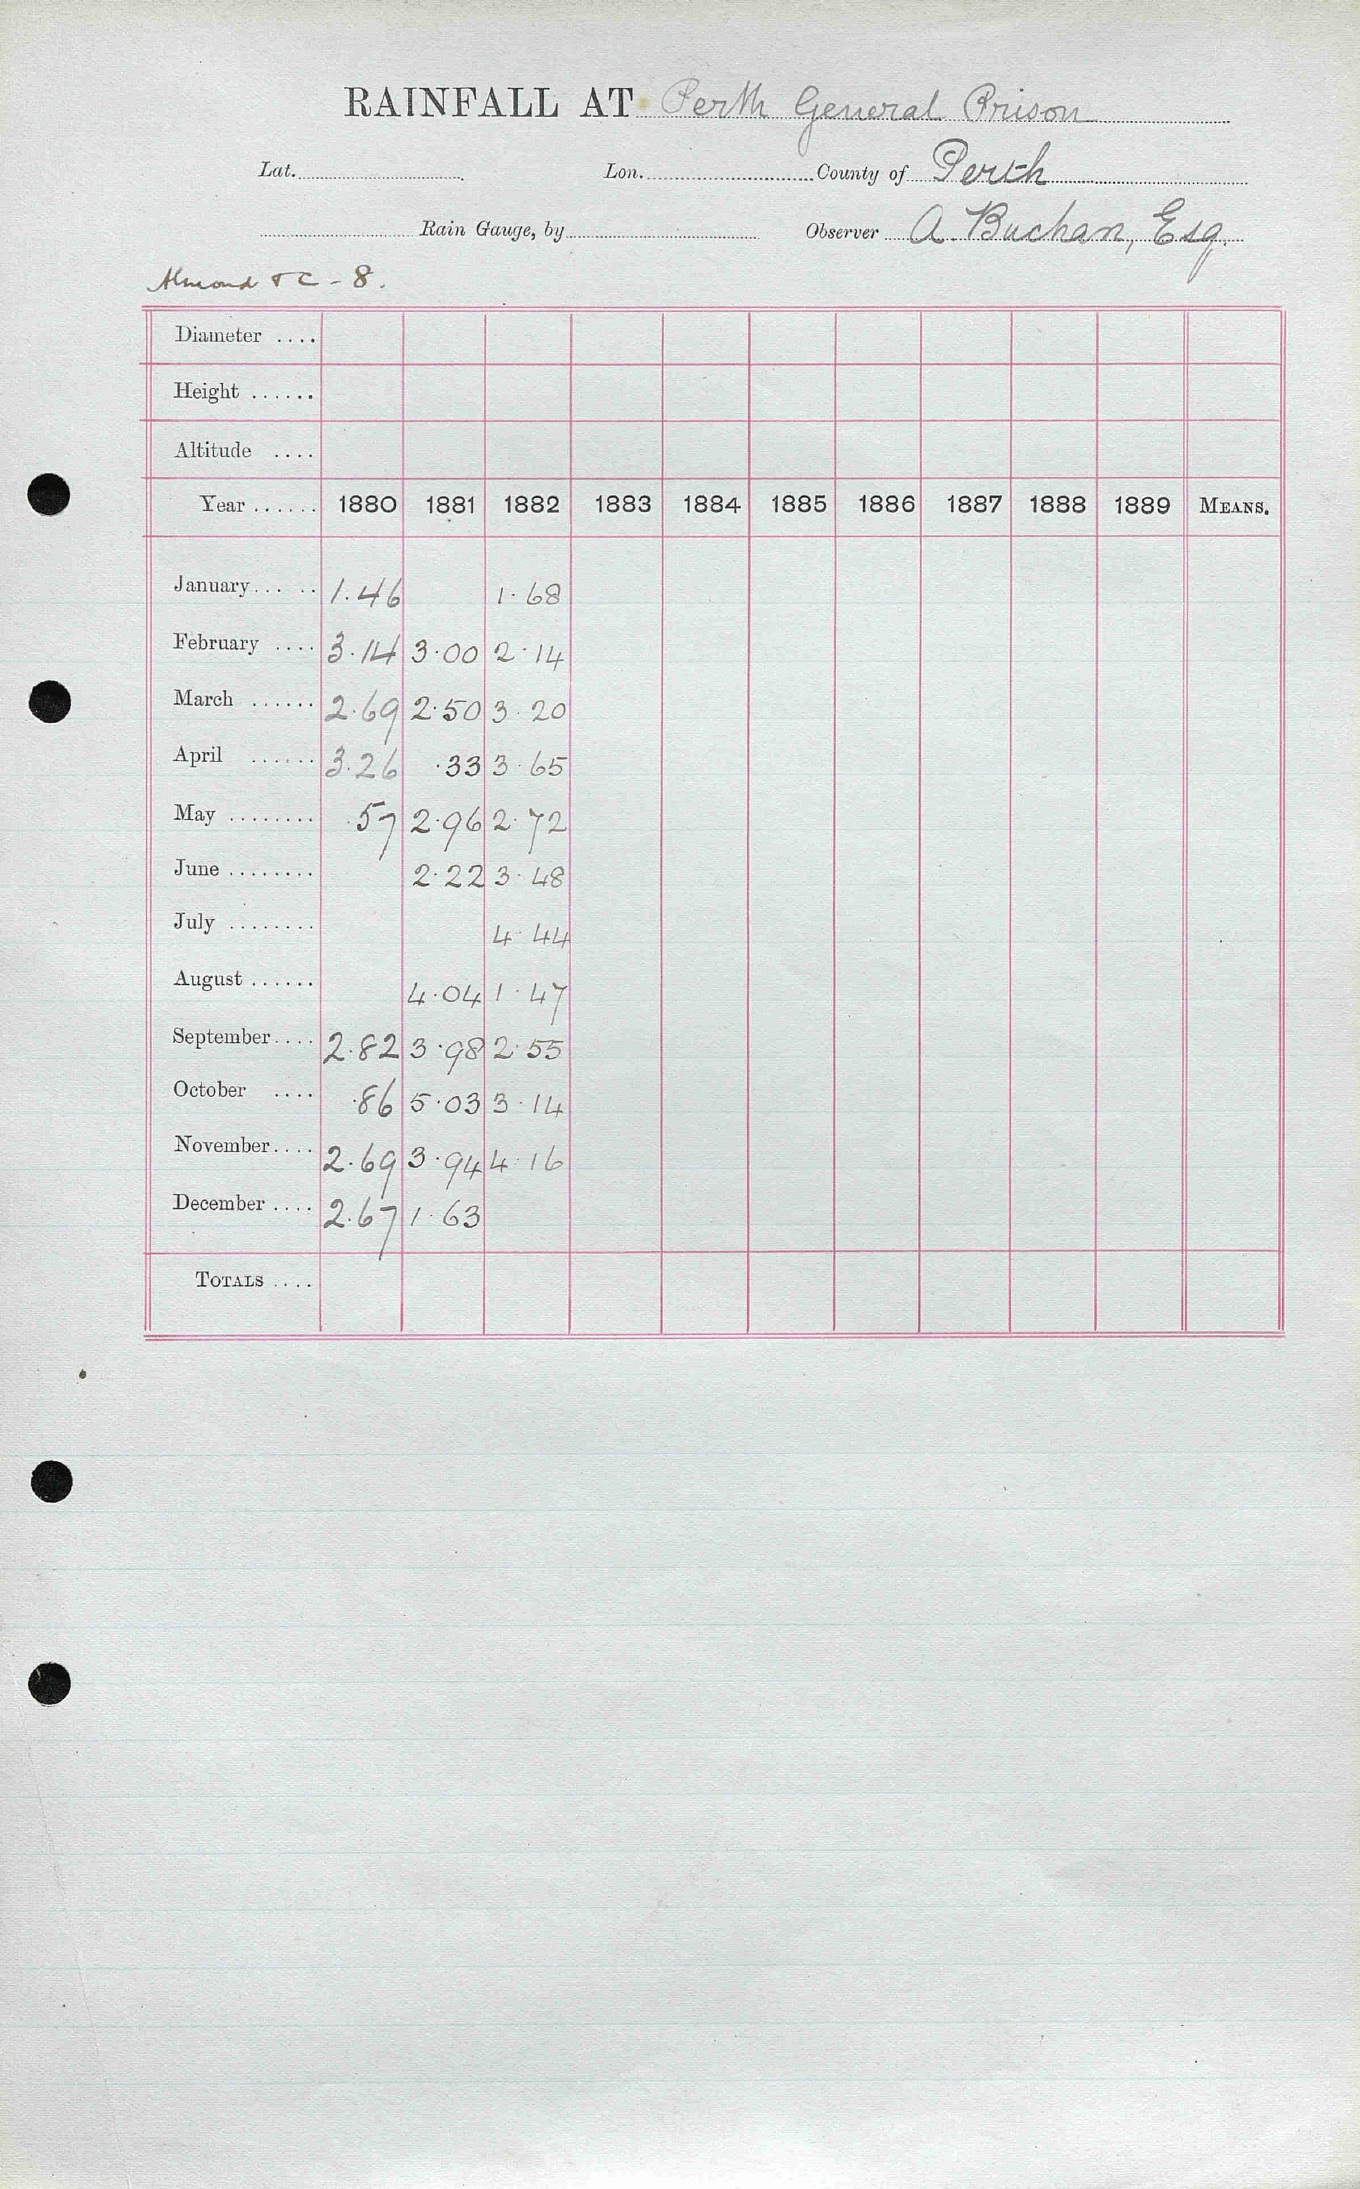 RAINFALL AT Perth General Prison
Lat. Lon. County of Perth
Rain Gauge, by Observer A. Buchan, Esq.
Almond & C - 8.
Diameter ....
Height ......
Altitude ....
Year ...... 1880 1881 1882 1883 1884 1885 1886 1887 1888 1889 MEANS.
January ... .. 1.46 1.68
February .... 3.14 3.00 2.14
March ...... 2.69 2.50 3.20
April ...... 3.26 .33 3.65
May ........ .57 2.96 2.72
June ........ 2.22 3.48
July ........ 4.44
August ...... 4.04 1.47
September .... 2.82 3.98 2.55
October .... .86 5.03 3.14
November .... 2.69 3.94 4.16
December .... 2.67 1.63
TOTALS ....